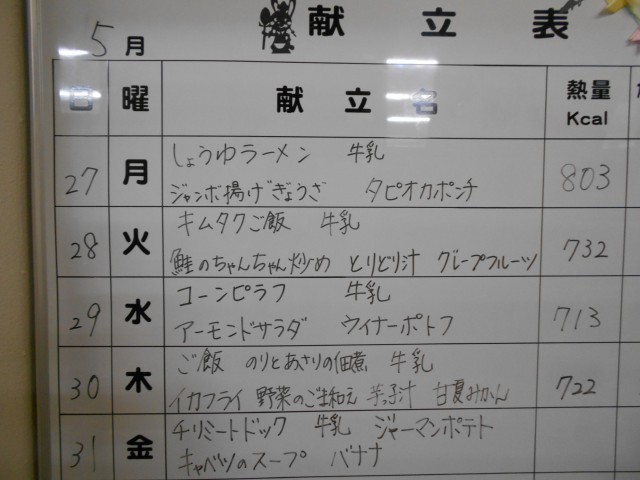 5月 献立表
日 曜 献立名 熱量 Kcal
27 月 しょうゆラーメン 牛乳 803
ジャンボ揚げぎょうざ タピオカポンチ
28 火 キムタクご飯 牛乳 732
鮭のちゃんちゃん炒め とりどり汁 グレープフルーツ
29 水 コーンピラフ 牛乳 713
アーモンドサラダ ウイナーポトフ
30 木 ご飯 のりとあさりの佃煮 牛乳 722
イカフライ 野菜のごま和え 芋子汁 甘夏みかん
31 金 チリミートドック 牛乳 ジャーマンポテト
キャベツのスープ バナナ